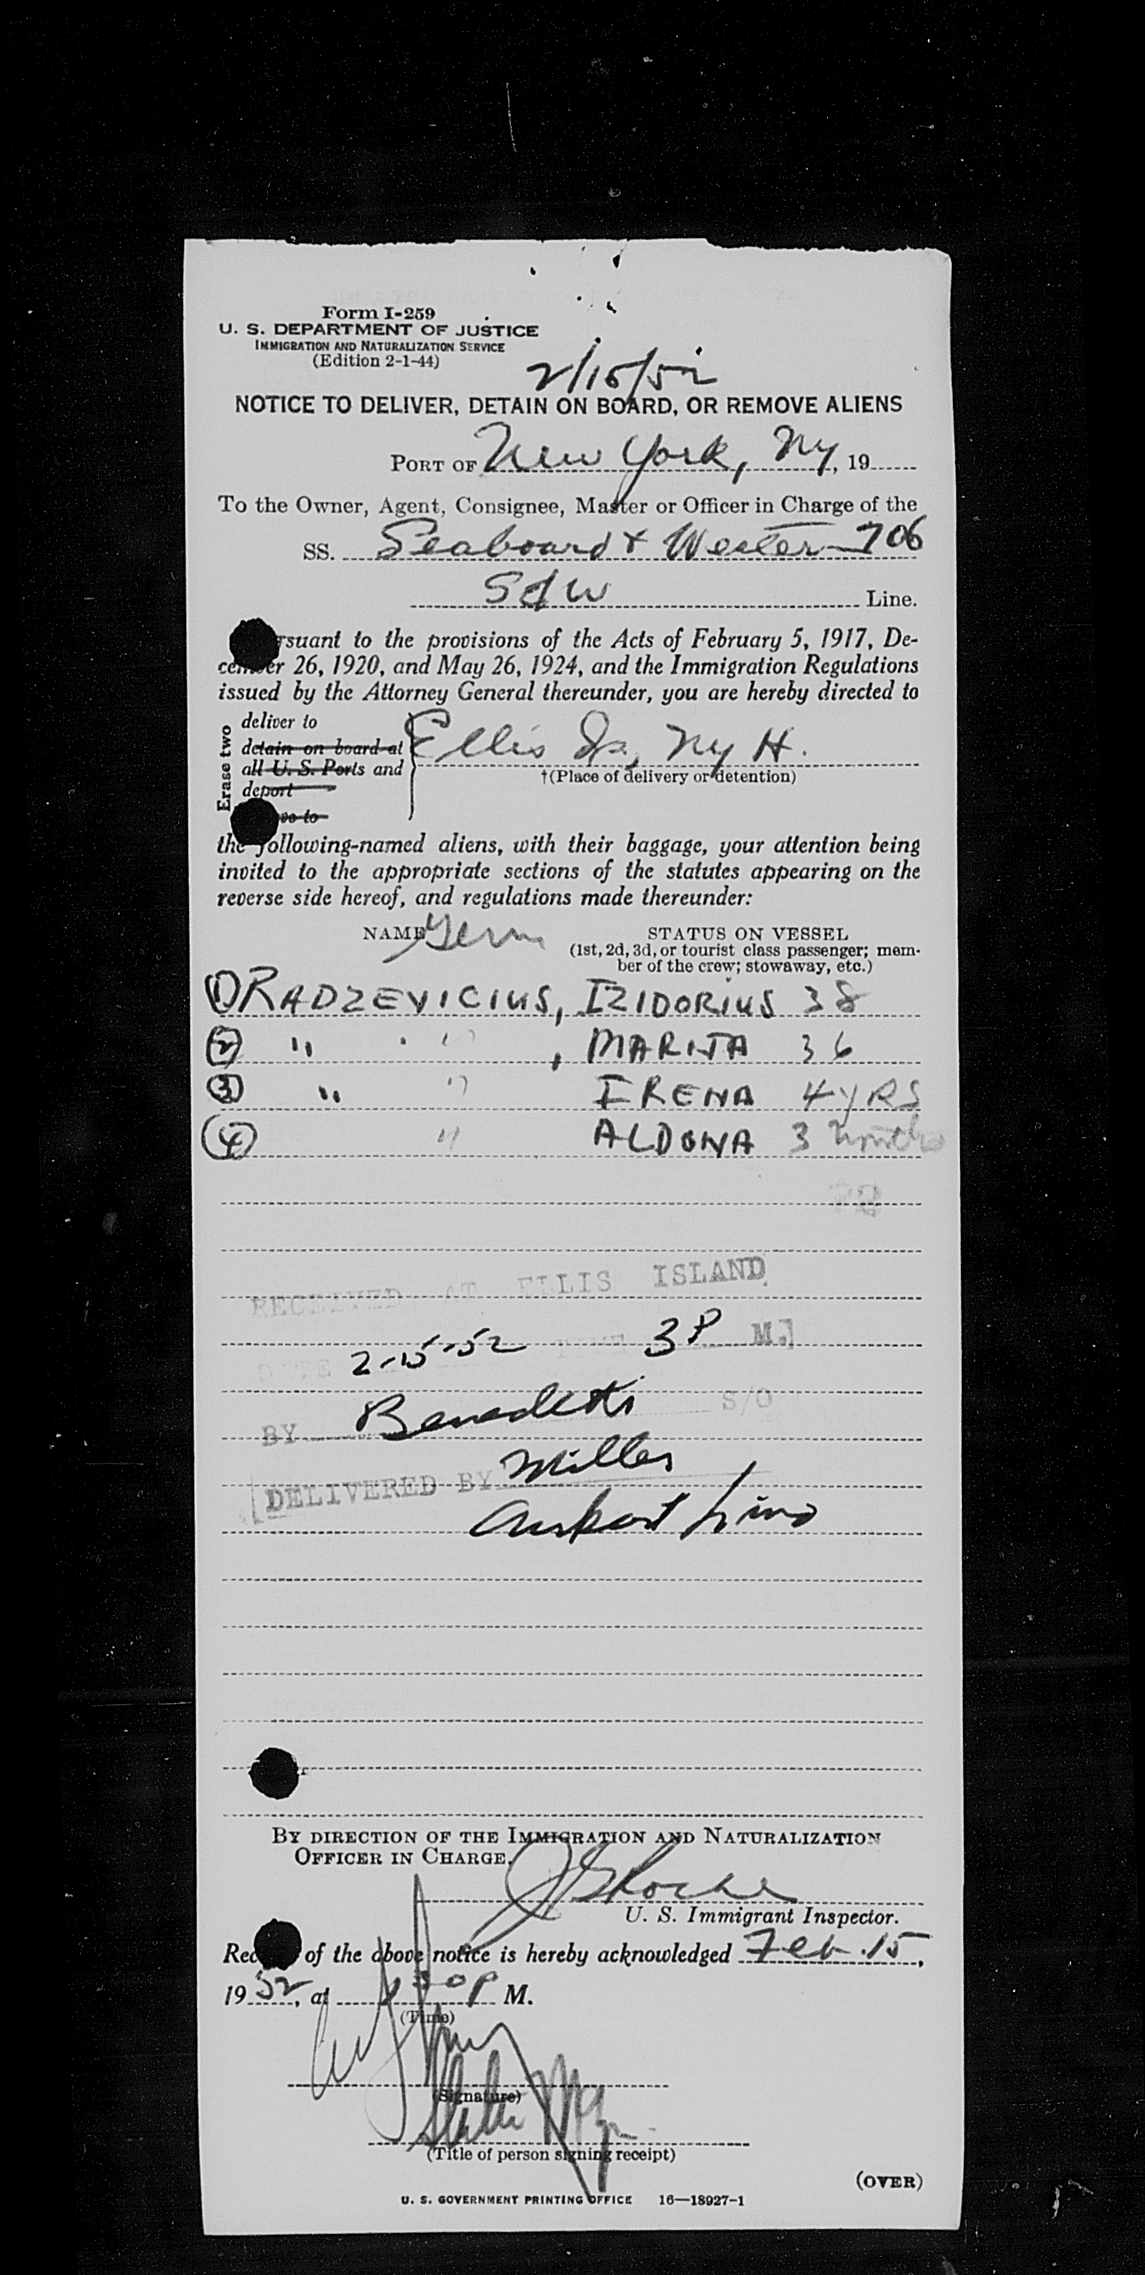 Form I-259
U. S. DEPARTMENT OF JUSTICE
IMMIGRATION AND NATURALIZATION SERVICE
(Edition 2-1-44)
2/15/52
NOTICE TO DELIVER, DETAIN ON BOARD, OR REMOVE ALIENS
PORT OF New York, Ny, 19
To the Owner, Agent, Consignee, Master or Officer in Charge of the
SS. Seaboard & Western 706
S & W Line.
rsuant to the provisions of the Acts of February 5, 1917, De-
cember 26, 1920, and May 26, 1924, and the Immigration Regulations
issued by the Attorney General thereunder, you are hereby directed to
Erase two
deliver to
detain on board at
all U. S. Ports and
deport
ve to
Ellis Is, Ny H.
†(Place of delivery or detention)
the following-named aliens, with their baggage, your attention being
invited to the appropriate sections of the statutes appearing on the
reverse side hereof, and regulations made thereunder:
NAME Germ STATUS ON VESSEL
(1st, 2d, 3d, or tourist class passenger; mem-
ber of the crew; stowaway, etc.)
1 RADZEVICIUS, IZIDORIUS 38
2 " " , MARIJA 36
3 " " IRENA 4 YRS
4 " ALDONA 3 months
RECEIVED AT ELLIS ISLAND
DATE 2-15-52 TIME 3 P M.
BY Benedetti S/O
DELIVERED BY Miller
Airport Limo
BY DIRECTION OF THE IMMIGRATION AND NATURALIZATION
OFFICER IN CHARGE.
Roche
U. S. Immigrant Inspector.
Rec of the above notice is hereby acknowledged Feb. 15,
1952, at 30 P M.
(Time)
(Signature)
(Title of person signing receipt)
(OVER)
U. S. GOVERNMENT PRINTING OFFICE 16—18927-1